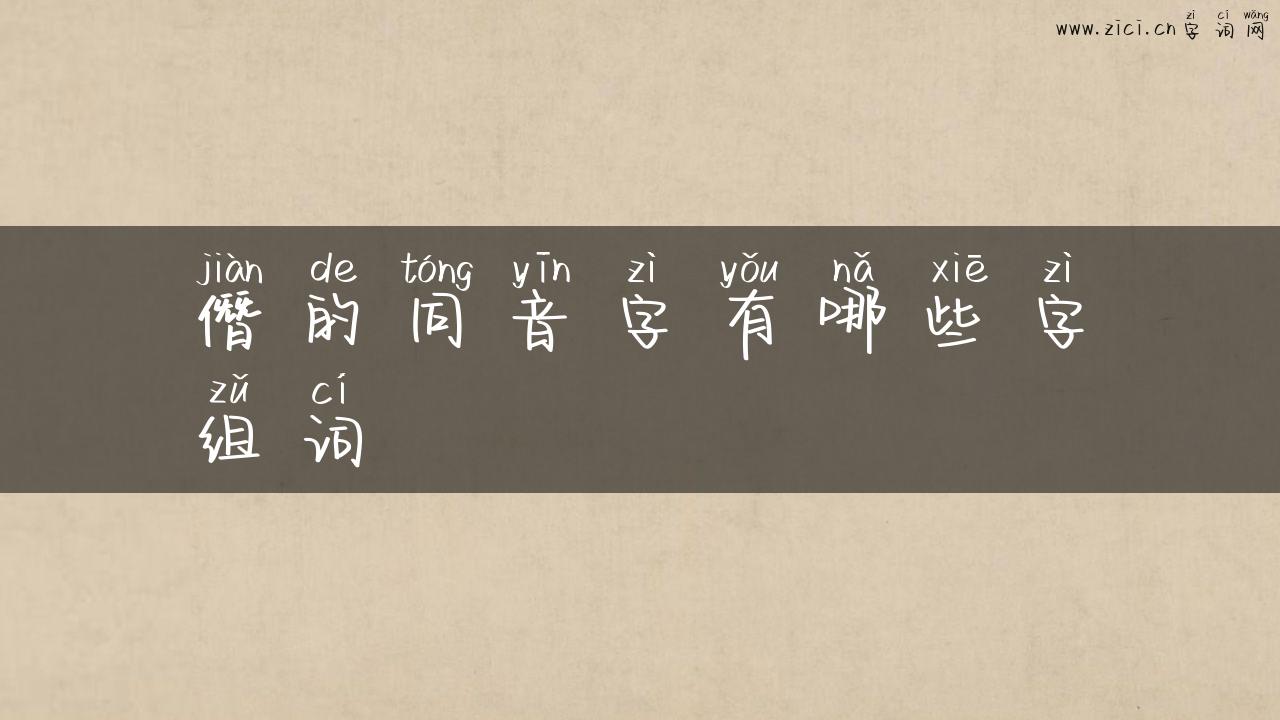 zì cí wǎng
www.zici.cn 字词网
jiàn de tóng yīn zì yǒu nǎ xiē zì
僭的同音字有哪些字
zǔ cí
组词